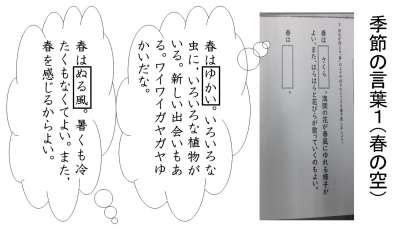 季節の言葉1（春の空）
春は さくら 。満開の花が春風にゆれる様子が
よい。また、はらはらと花びらが散っていくのもよい。
春は 。
春はゆかい。いろいろな
虫に、いろいろな植物が
いる。新しい出会いもあ
る。ワイワイガヤガヤゆ
かいだな。
春はぬる風。暑くも冷
たくもなくてよい。また、
春を感じるからよい。